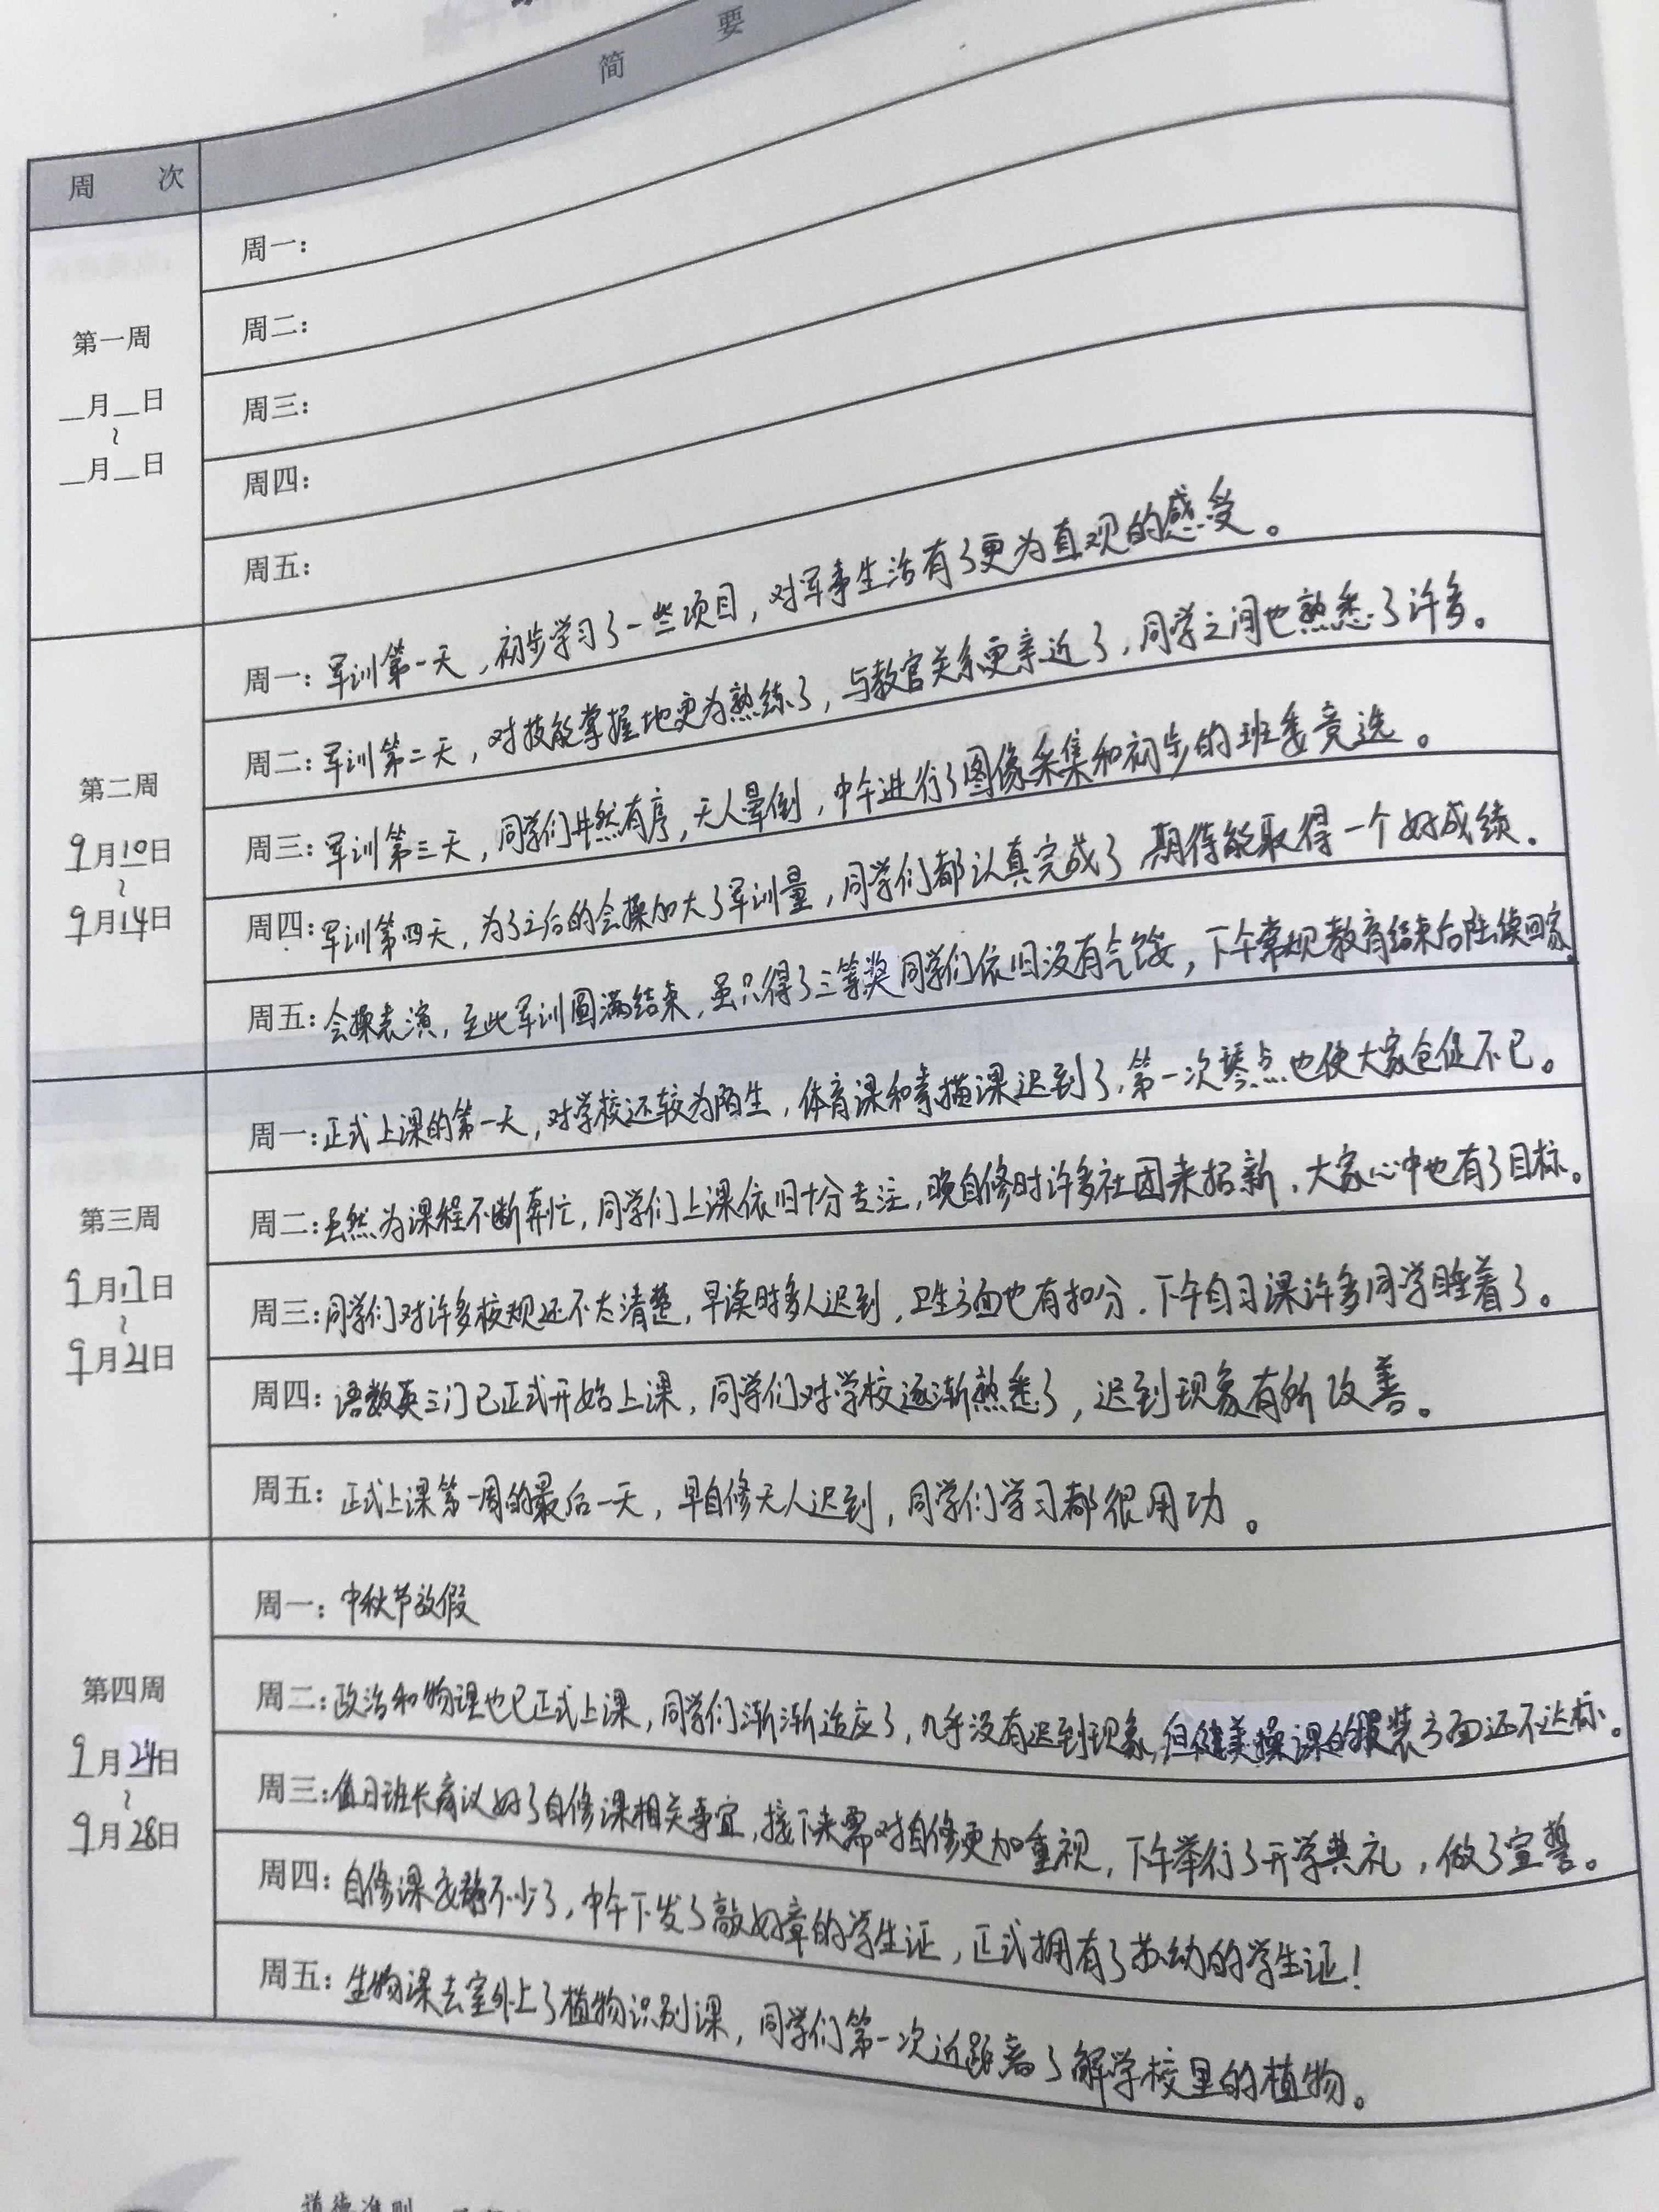 简 要
周 次
第一周
__月__日
~
__月__日
周一:
周二:
周三:
周四:
周五:
第二周
9月10日
~
9月14日
周一:军训第一天,初步学习了一些项目,对军事生活有了更为直观的感受。
周二:军训第二天,对技能掌握地更为熟练了,与教官关系更亲近了,同学之间也熟悉了许多。
周三:军训第三天,同学们井然有序,无人晕倒,中午进行了图像采集和初步的班委竞选。
周四:军训第四天,为了之后的会操加大了军训量,同学们都认真完成了 期待能取得一个好成绩。
周五:会操表演,至此军训圆满结束,虽只得了三等奖 同学们依旧没有气馁,下午常规教育结束后陆续回家。
第三周
9月17日
~
9月21日
周一:正式上课的第一天,对学校还较为陌生,体育课和素描课迟到了,第一次琴点也使大家仓促不已。
周二:虽然为课程不断奔忙,同学们上课依旧十分专注,晚自修时许多社团来招新,大家心中也有了目标。
周三:同学们对许多校规还不太清楚,早读时多人迟到,卫生方面也有扣分,下午自习课许多同学睡着了。
周四:语数英三门已正式开始上课,同学们对学校逐渐熟悉了,迟到现象有所改善。
周五:正式上课第一周的最后一天,早自修无人迟到,同学们学习都很用功。
第四周
9月24日
~
9月28日
周一:中秋节放假
周二:政治和物理也已正式上课,同学们渐渐适应了,几乎没有迟到现象,但健美操课的服装方面还不达标。
周三:值日班长商议好了自修课相关事宜,接下来需对自修更加重视,下午举行了开学典礼,做了宣誓。
周四:自修课安静不少了,中午下发了敲好章的学生证,正式拥有了苏幼的学生证!
周五:生物课去室外上了植物识别课,同学们第一次近距离了解学校里的植物。
道德准则